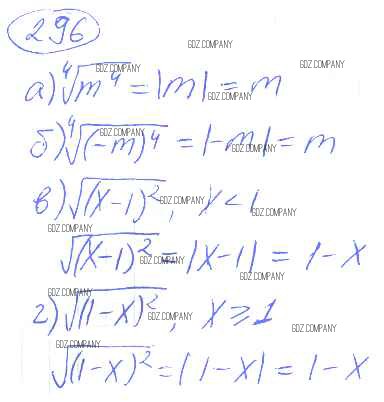 296
GDZ.COMPANY
а) ⁴√m⁴ = |m| = m
GDZ.COMPANY GDZ.COMPANY
GDZ.COMPANY
б) ⁴√(-m)⁴ = |-m| = m
GDZ.COMPANY GDZ.COMPANY
в) √(x-1)², x < 1
GDZ.COMPANY GDZ.COMPANY
GDZ.COMPANY
√(x-1)² = |x-1| = 1-x
GDZ.COMPANY GDZ.COMPANY
GDZ.COMPANY
г) √(1-x)², x ≥ 1
GDZ.COMPANY GDZ.COMPANY
GDZ.COMPANY
√(1-x)² = |1-x| = 1-x
GDZ.COMPANY